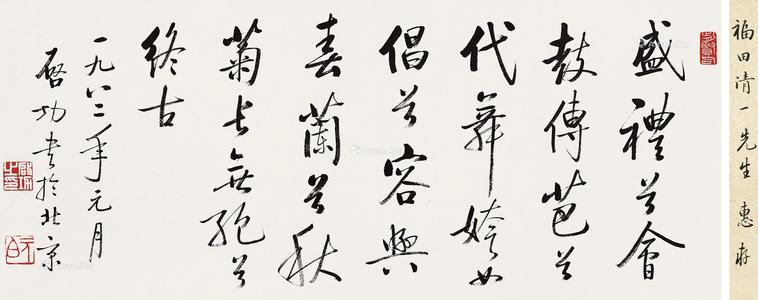 福田清一先生 惠存
盛禮兮會
鼓傳芭兮
代舞姱女
倡兮容與
春蘭兮秋
菊長無絕兮
終古
一九八二年元月
啓功書於北京